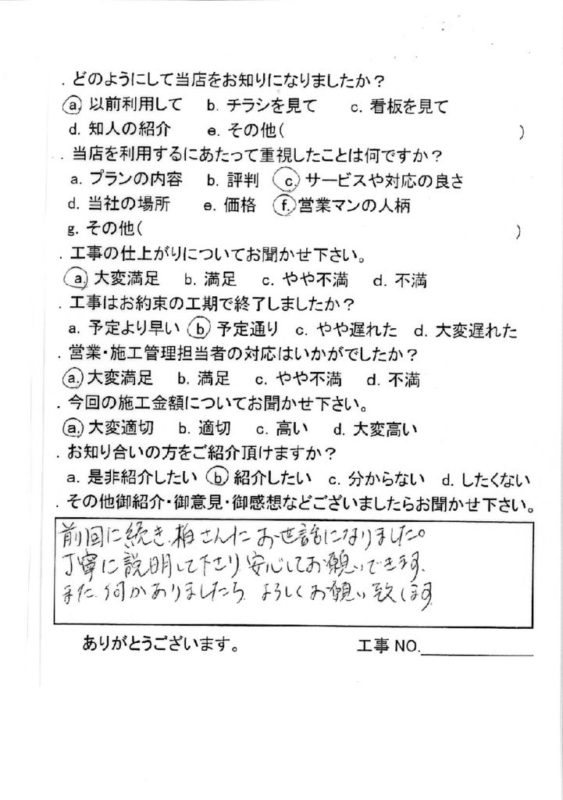 . どのようにして当店をお知りになりましたか？
a. 以前利用して b. チラシを見て c. 看板を見て
d. 知人の紹介 e. その他( )
. 当店を利用するにあたって重視したことは何ですか？
a. プランの内容 b. 評判 c. サービスや対応の良さ
d. 当社の場所 e. 価格 f. 営業マンの人柄
g. その他( )
. 工事の仕上がりについてお聞かせ下さい。
a. 大変満足 b. 満足 c. やや不満 d. 不満
. 工事はお約束の工期で終了しましたか？
a. 予定より早い b 予定通り c. やや遅れた d. 大変遅れた
. 営業・施工管理担当者の対応はいかがでしたか？
a. 大変満足 b. 満足 c. やや不満 d. 不満
. 今回の施工金額についてお聞かせ下さい。
a. 大変適切 b. 適切 c. 高い d. 大変高い
. お知り合いの方をご紹介頂けますか？
a. 是非紹介したい b 紹介したい c. 分からない d. したくない
. その他御紹介・御意見・御感想などございましたらお聞かせ下さい。
前回に続き、柏さんにお世話になりました。
丁寧に説明して下さり安心してお願いできます。
また、何かありましたら、よろしくお願い致します。
ありがとうございます。 工事 NO.